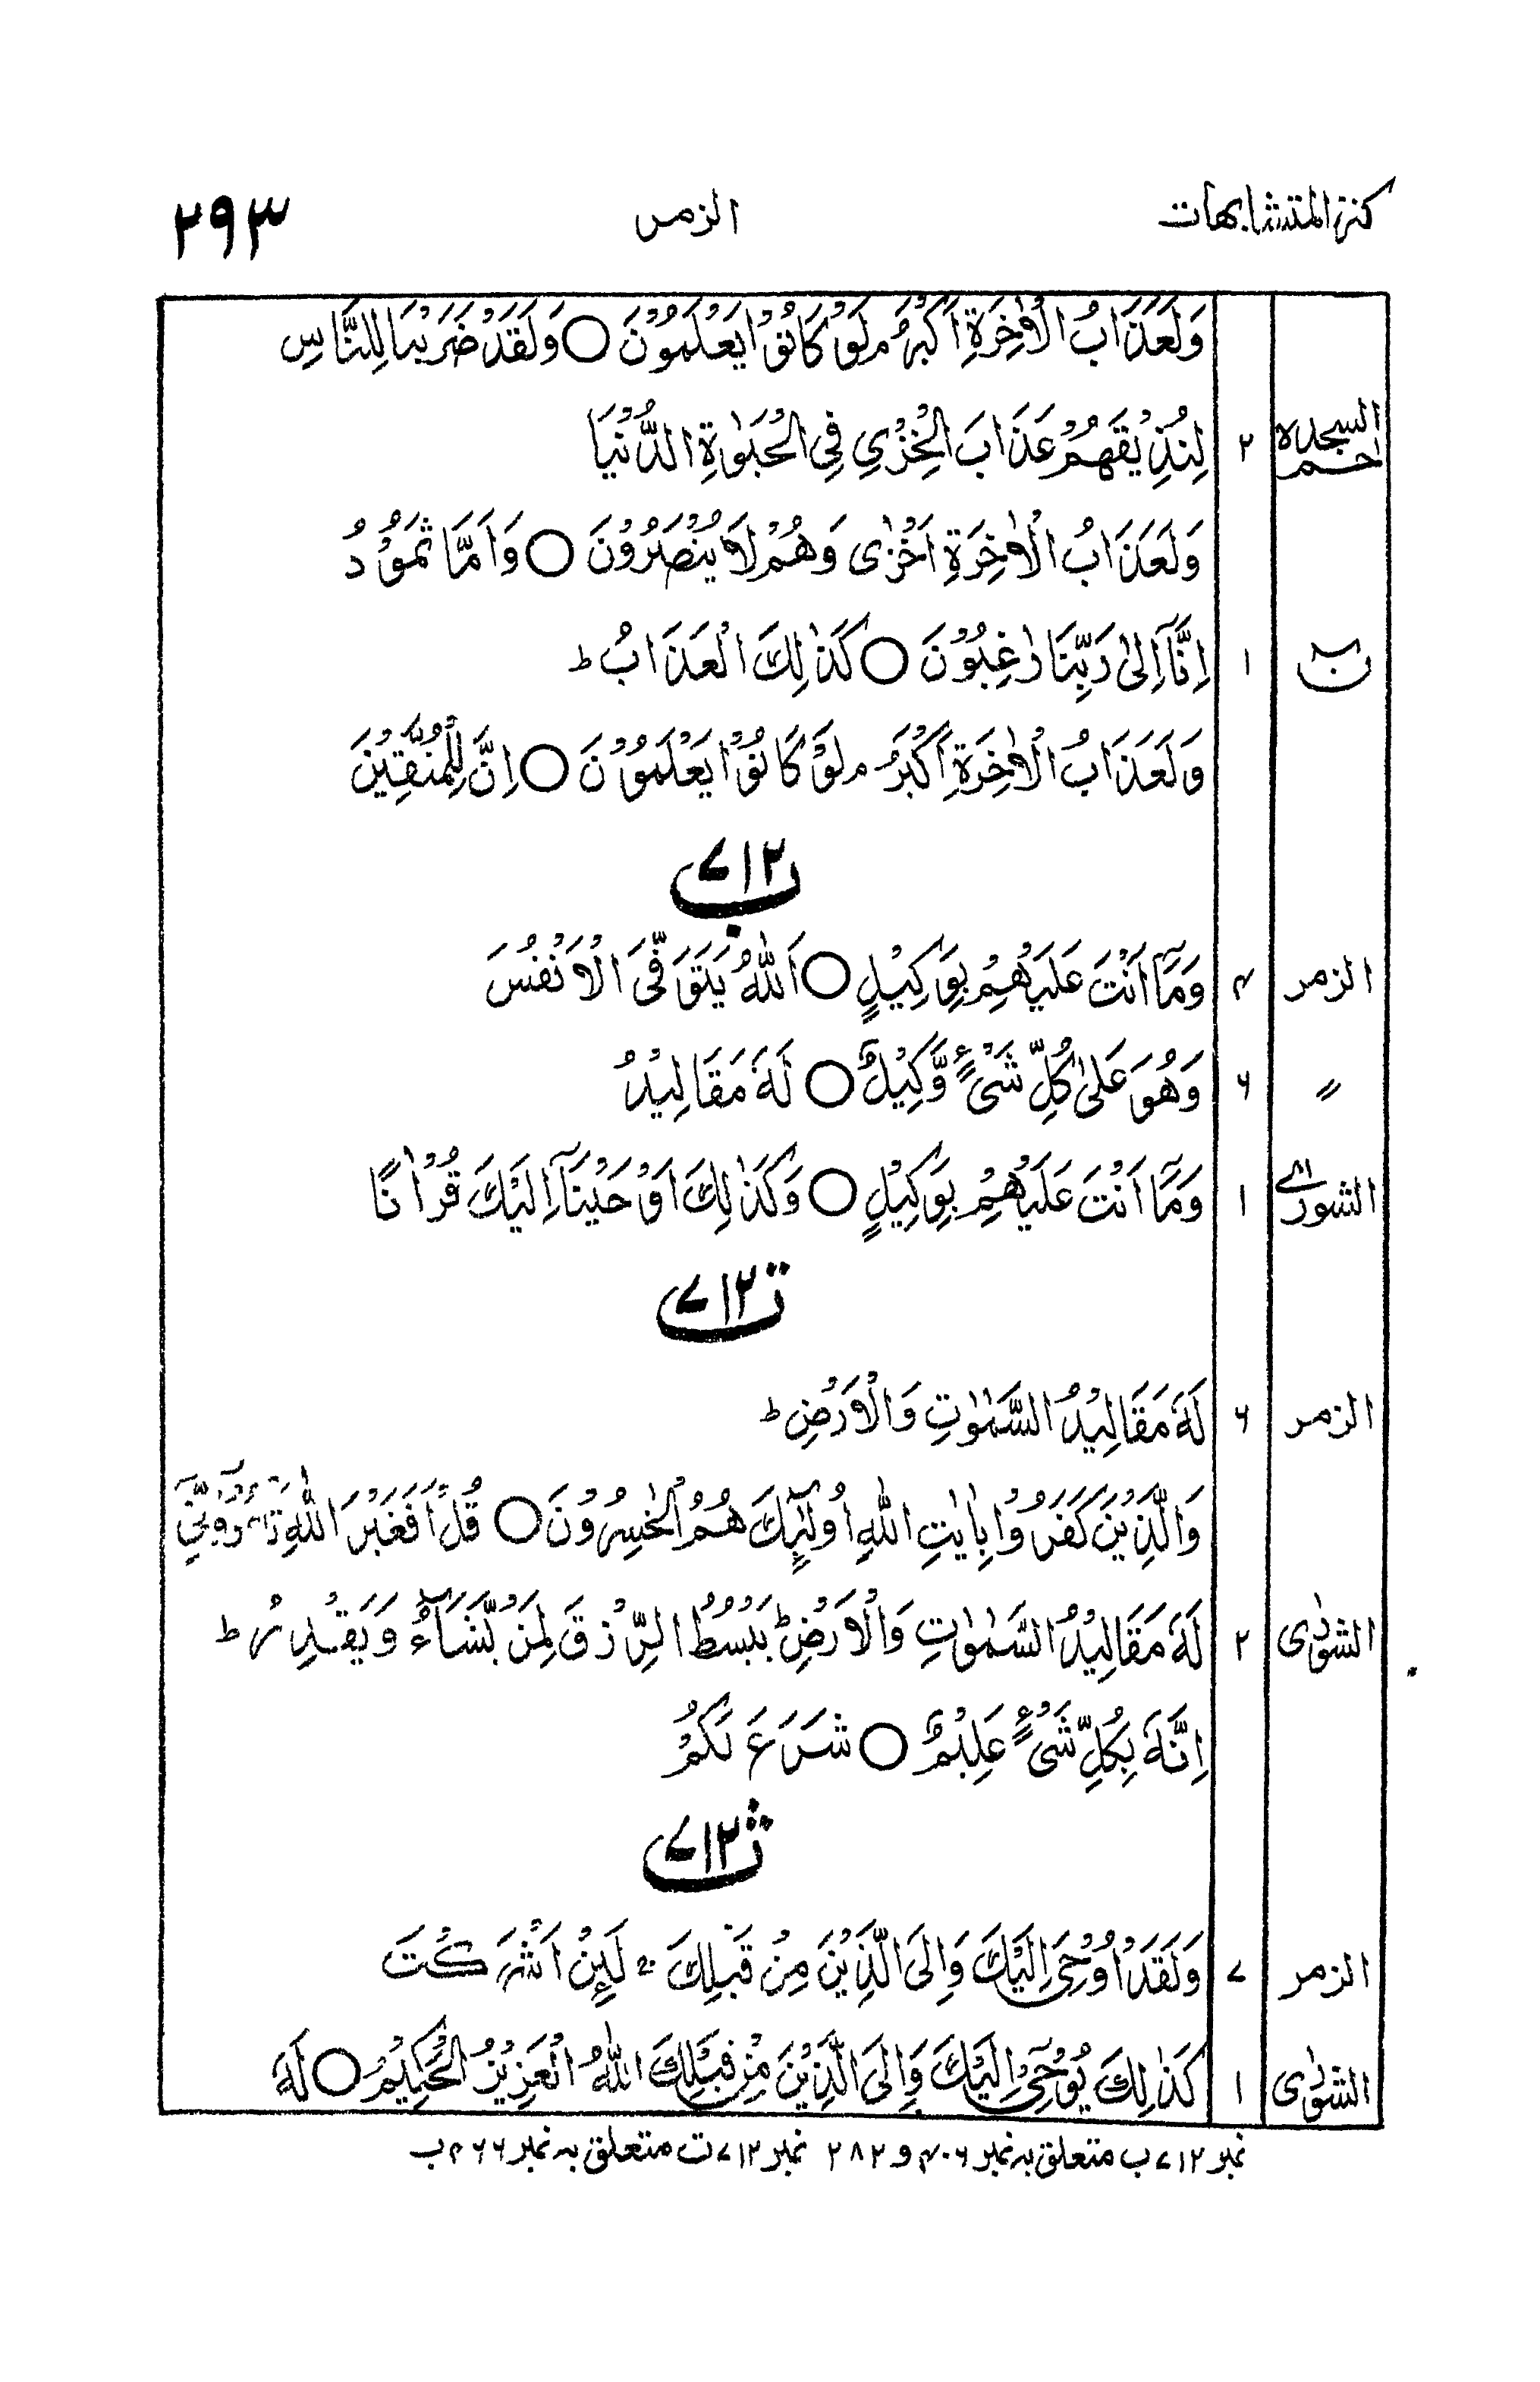 كنز المتشابهات الزمر ٢٩٣
وَلَعَذَابُ الْاٰخِرَةِ اَكْبَرُ م لَوْ كَانُوْا يَعْلَمُوْنَ ○ وَلَقَدْ ضَرَبْنَا لِلنَّاسِ
حٰم السجدہ ٢ لِنُذِيْقَهُمْ عَذَابَ الْخِزْيِ فِي الْحَيٰوةِ الدُّنْيَا
وَلَعَذَابُ الْاٰخِرَةِ اَخْزٰى وَهُمْ لَا يُنْصَرُوْنَ ○ وَاَمَّا ثَمُوْدُ
نٓ ١ اِنَّآ اِلٰى رَبِّنَا رٰغِبُوْنَ ○ كَذٰلِكَ الْعَذَابُ ط
وَلَعَذَابُ الْاٰخِرَةِ اَكْبَرُ م لَوْ كَانُوْا يَعْلَمُوْنَ ○ اِنَّ لِلْمُتَّقِيْنَ
٧١٢ ب
الزمر ۴ وَمَآ اَنْتَ عَلَيْهِمْ بِوَكِيْلٍ ○ اَللّٰهُ يَتَوَفَّى الْاَنْفُسَ
〃 ٦ وَهُوَ عَلٰى كُلِّ شَيْءٍ وَّكِيْلٌ ○ لَهٗ مَقَالِيْدُ
الشورٰى ١ وَمَآ اَنْتَ عَلَيْهِمْ بِوَكِيْلٍ ○ وَكَذٰلِكَ اَوْحَيْنَآ اِلَيْكَ قُرْاٰنًا
٧١٢ ت
الزمر ٦ لَهٗ مَقَالِيْدُ السَّمٰوٰتِ وَالْاَرْضِ ط
وَالَّذِيْنَ كَفَرُوْا بِاٰيٰتِ اللّٰهِ اُولٰٓئِكَ هُمُ الْخٰسِرُوْنَ ○ قُلْ اَفَغَيْرَ اللّٰهِ تَاْمُرُوْٓنِّيْٓ
الشورٰى ٢ لَهٗ مَقَالِيْدُ السَّمٰوٰتِ وَالْاَرْضِ ط يَبْسُطُ الرِّزْقَ لِمَنْ يَّشَآءُ وَيَقْدِرُ ط
اِنَّهٗ بِكُلِّ شَيْءٍ عَلِيْمٌ ○ شَرَعَ لَكُمْ
٧١٢ ث
الزمر ٧ وَلَقَدْ اُوْحِيَ اِلَيْكَ وَاِلَى الَّذِيْنَ مِنْ قَبْلِكَ ج لَئِنْ اَشْرَكْتَ
الشورٰى ١ كَذٰلِكَ يُوْحِيْٓ اِلَيْكَ وَاِلَى الَّذِيْنَ مِنْ قَبْلِكَ اللّٰهُ الْعَزِيْزُ الْحَكِيْمُ ○ لَهٗ
نمبر ٧١٢ ب متعلق بہ نمبر ۴٠٦ و ٢٨٢ نمبر ٧١٢ ت متعلق بہ نمبر ۴٦٦ ب